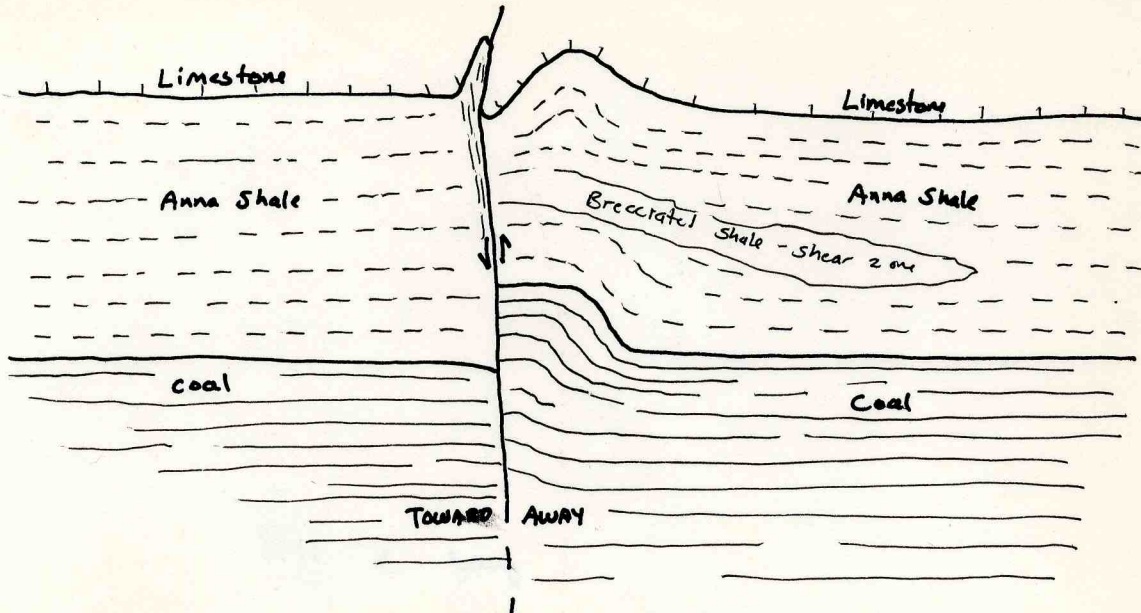 Limestone
Limestone
Anna Shale
Anna Shale
Brecciated shale - shear zone
coal
Coal
TOWARD AWAY